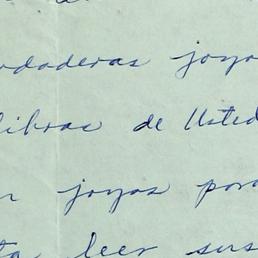 rdaderas joya
libros de Usted
r joyas para
ta leer sus